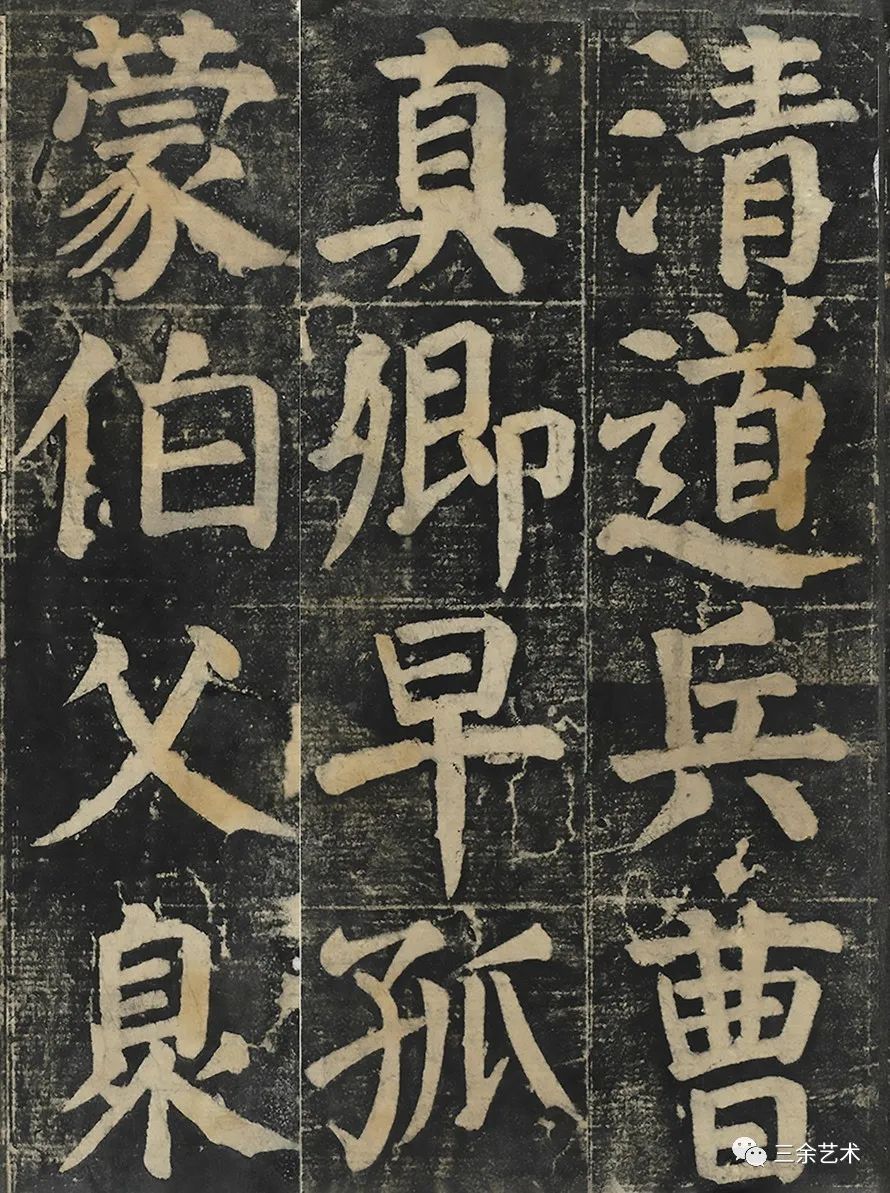 清道兵曹
真卿早孤
蒙伯父臮
三余艺术